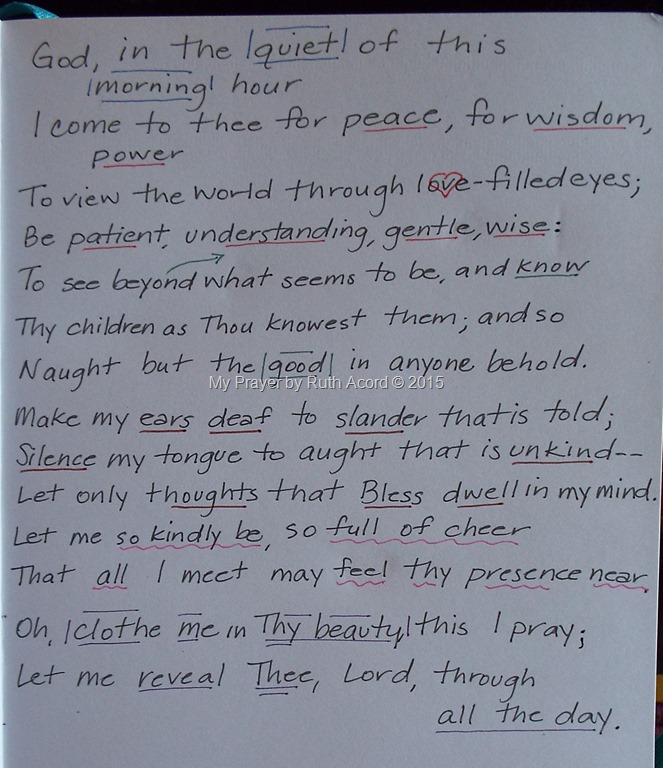 God, in the quiet of this
morning hour
I come to thee for peace, for wisdom,
power
To view the world through love-filled eyes;
Be patient, understanding, gentle, wise:
To see beyond what seems to be, and know
Thy children as Thou knowest them; and so
Naught but the good in anyone behold.
My Prayer by Ruth Acord © 2015
Make my ears deaf to slander that is told;
Silence my tongue to aught that is unkind--
Let only thoughts that Bless dwell in my mind.
Let me so kindly be, so full of cheer
That all I meet may feel thy presence near.
Oh, clothe me in Thy beauty, this I pray;
Let me reveal Thee, Lord, through
all the day.